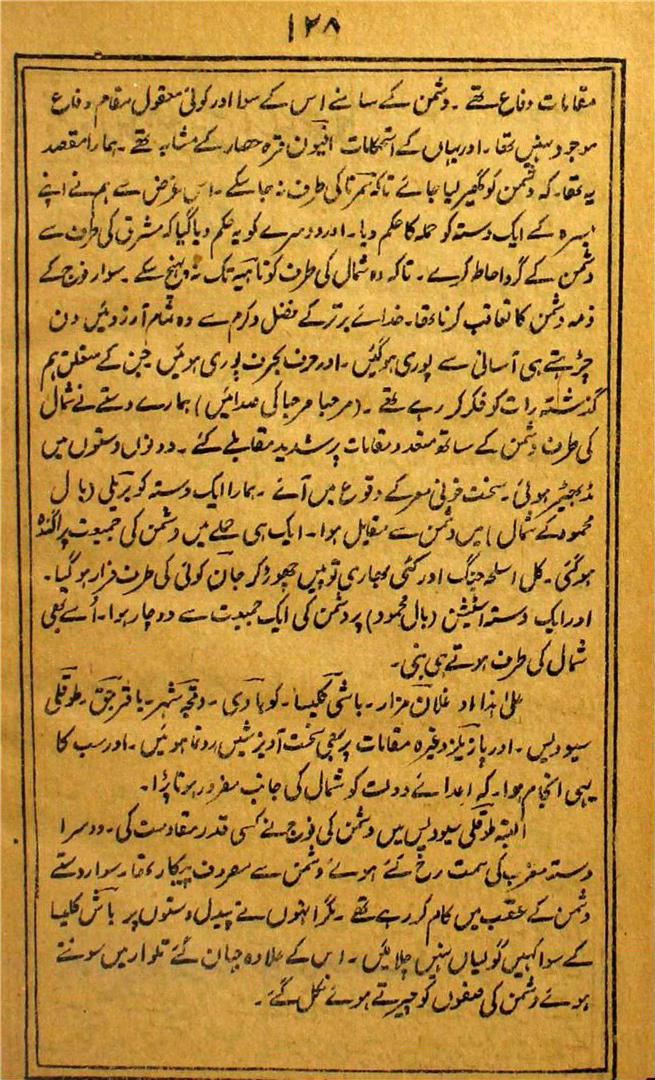 ۱۲۸
مقامات دفاع تھے ۔ دشمن کے سامنے اس کے سوا اور کوئی معقول مقام دفاع
موجود نہیں تھا ۔ اور یہاں کے استحکامات افیون قرہ حصار کے مشابہ تھے ۔ ہمارا مقصد
یہ تھا ۔ کہ دشمن کو گھیر لیا جائے تاکہ سمرنا کی طرف نہ جا سکے ۔ اس غرض سے ہم نے اپنے
میسرہ کے ایک دستہ کو حملہ کا حکم دیا ۔ اور دوسرے کو یہ حکم دیا گیا کہ مشرق کی طرف سے
دشمن کے گرد احاطہ کرے ۔ تاکہ وہ شمال کی طرف کوتاہیہ تک نہ پہنچ سکے ۔ سوار فوج کے
ذمہ دشمن کا تعاقب کرنا تھا ۔ خدائے برتر کے فضل و کرم سے وہ تمام آرزوئیں دن
چڑہتے ہی آسانی سے پوری ہوگئیں ۔ اور حرف بحرف پوری ہوئیں جن کے متعلق ہم
گذشتہ رات کو فکر کر رہے تھے ۔ (مرحبا مرحبا کی صدائیں) ہمارے دستے نے شمال
کی طرف دشمن کے ساتھ متعدد مقامات پر شدید مقابلے کئے ۔ دونوں دستوں میں
مڈبھیڑ ہوئی ۔ سخت خونی معرکے وقوع میں آئے ۔ ہمارا ایک دستہ کو بریلی (بال
محمود کے شمال) میں دشمن سے مقابل ہوا ۔ ایک ہی حملے میں دشمن کی جمیعت پراگندہ
ہوگئی ۔ کل اسلحہ جنگ اور کئی بھاری توپیں چھوڑ کر جان کوئی کی طرف فرار ہو گیا ۔
اور ایک دستہ اسٹیشن (بال محمود) پر دشمن کی ایک جمیعت سے دوچار ہوا ۔ اُسے بھی
شمال کی طرف ہوتے ہی بنی ۔
علیٰ ہذا اد غلان مزار ۔ باشی کلیسا ۔ کوہادی ۔ وقچہ شہر ۔ باقرجق ۔ طوقلی
سیودیس ۔ اور پازیکز وغیرہ مقامات پر بھی سخت آویزشیں رونما ہوئیں ۔ اور سب کا
یہی انجام ہوا ۔ کہ اعدائے دولت کو شمال کی جانب مفرور ہونا پڑا ۔
البتہ طوقلی سیودیس میں دشمن کی فوج نے کسی قدر مقاومت کی ۔ دوسرا
دستہ مغرب کی سمت رخ کئے ہوئے دشمن سے مصروف پیکار تھا ۔ سوار دستے
دشمن کے عقب میں کام کر رہے تھے ۔ مگر انہوں نے پیدل دستوں پر باش کلیسا
کے سوا کہیں گولیاں نہیں چلائیں ۔ اس کے علاوہ جہاں گئے تلواریں سونتے
ہوئے دشمن کی صفوں کو چیرتے ہوئے نکل گئے ۔